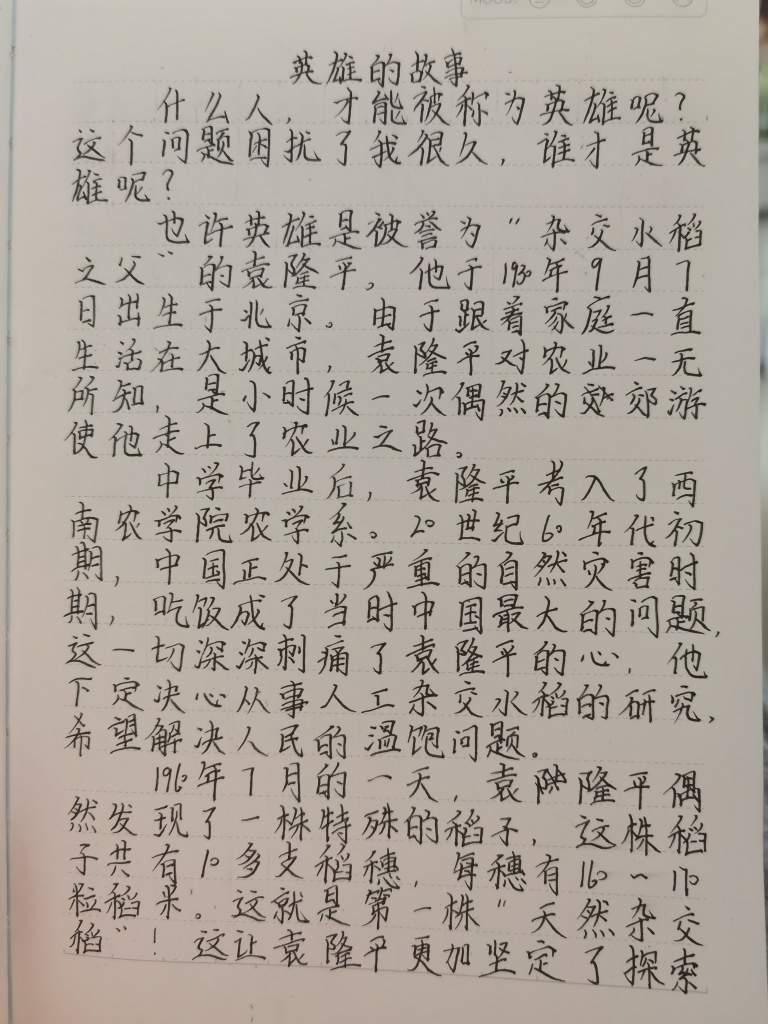 MOOD:
英雄的故事
什么人，才能被称为英雄呢？
这个问题困扰了我很久，谁才是英
雄呢？
也许英雄是被誉为“杂交水稻
之父”的袁隆平。他于1930年9月7
日出生于北京。由于跟着家庭一直
生活在大城市，袁隆平对农业一无
所知，是小时候一次偶然的郊游
使他走上了农业之路。
中学毕业后，袁隆平考入了西
南农学院农学系。20世纪60年代初
期，中国正处于严重的自然灾害时
期，吃饭成了当时中国最大的问题，
这一切深深刺痛了袁隆平的心，他
下定决心从事人工杂交水稻的研究，
希望解决人民的温饱问题。
1960年7月的一天，袁隆平偶
然发现了一株特殊的稻子，这株稻
子共有10多支稻穗，每穗有160~170
粒稻米。这就是第一株“天然杂交
稻”！这让袁隆平更加坚定了探索